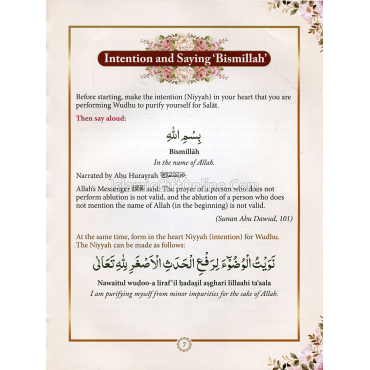 Intention and Saying 'Bismillah'
Before starting, make the intention (Niyyah) in your heart that you are
performing Wudhu to purify yourself for Salāt.
Then say aloud:
بِسْمِ اللهِ
Bismillāh
In the name of Allah.
Narrated by Abu Hurayrah
Allah's Messenger ﷺ said: The prayer of a person who does not
perform ablution is not valid, and the ablution of a person who does
not mention the name of Allah (in the beginning) is not valid.
(Sunan Abu Dawud, 101)
At the same time, form in the heart Niyyah (intention) for Wudhu.
The Niyyah can be made as follows:
نَوَيْتُ الْوُضُوْٓءَ لِرَفْعِ الْحَدَثِ الْاَصْغَرِ لِلّٰهِ تَعَالٰى
Nawaitul wuḍoo-a liraf'il ḥadaṡil asghari lillaahi ta'aala
I am purifying myself from minor impurities for the sake of Allah.
7